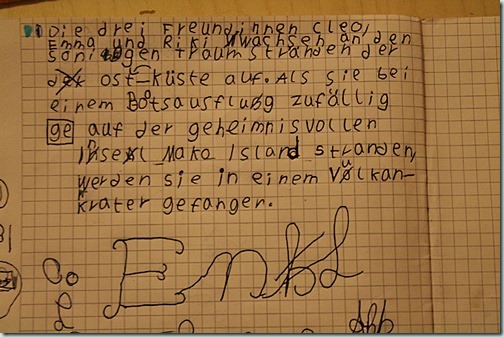 Die drei Freundinnen Cleo,
Emma und Riki wachsen an den
sonigen Traumstränden der
ost-Küste auf. Als sie bei
einem Bootsausflug zufällig
ge auf der geheimnisvollen
Insel Mako Island stranden,
werden sie in einem Vulkan-
krater gefangen.